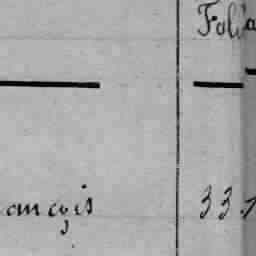 Folia
ançois 331